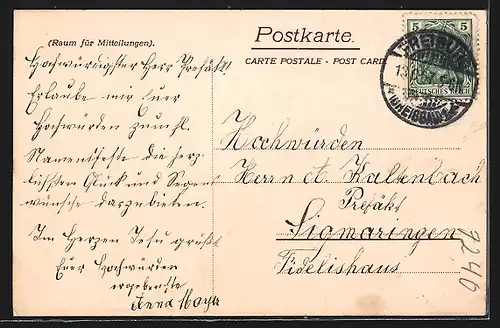 (Raum für Mitteilungen).
Hochwürdigster Herr Präfekt!
Erlaube mir Euer
Hochwürden zum hl.
Namensfeste die herz-
lichsten Glück und Segens
wünsche darzubieten.
Im Herzen Jesu grüßt
Euer Hochwürden
ergebenste
Anna
Postkarte.
CARTE POSTALE - POST CARD
5 5
FREIBURG
(BREISGAU)
DEUTSCHES REICH
Hochwürden
Herrn A. Kaltenbach
Präfekt
Sigmaringen
Fidelishaus
7246